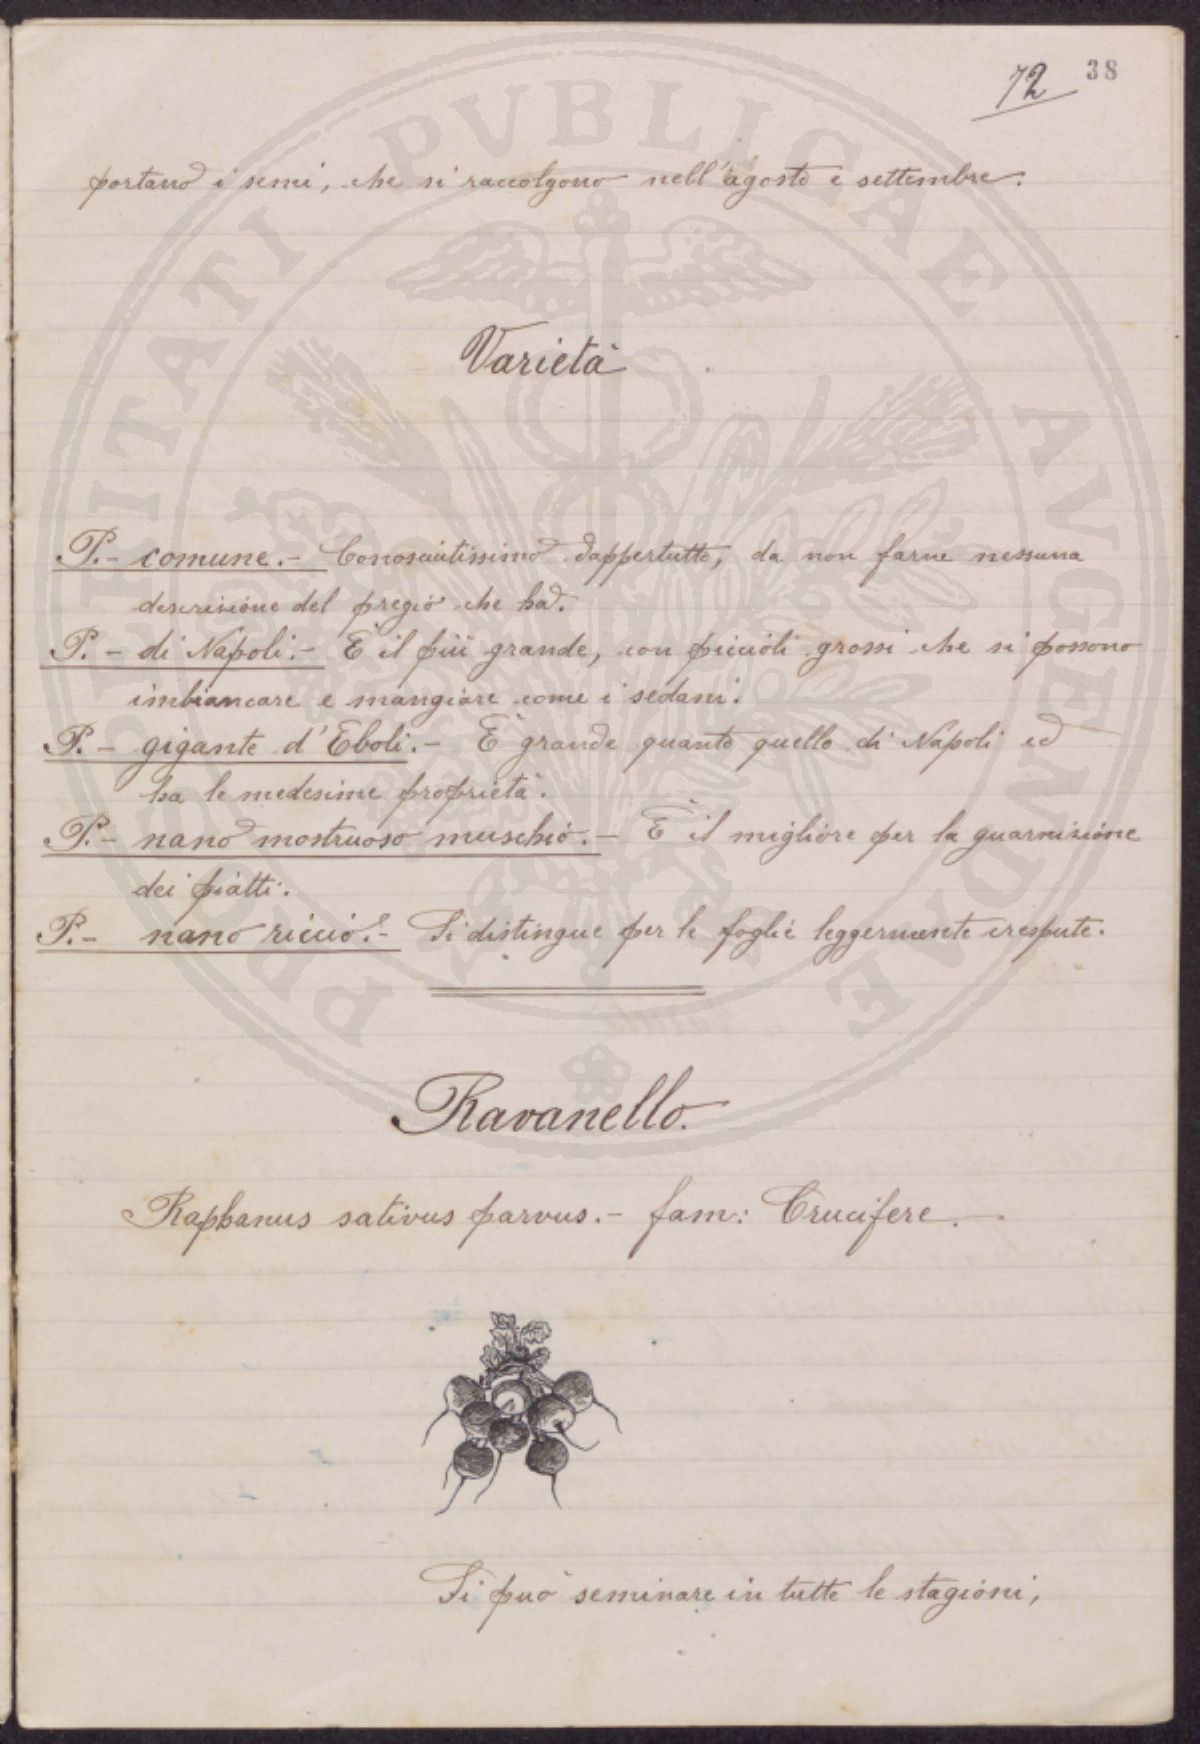 72 38
portano i semi, che si raccolgono nell'agosto e settembre.
Varietà
P.- comune.- Conosciutissimo dappertutto, da non farne nessuna
descrizione del pregio che ha.
P.- di Napoli.- È il più grande, con piccioli grossi che si possono
imbiancare e mangiare come i sedani.
P.- gigante d'Eboli.- È grande quanto quello di Napoli ed
ha le medesime proprietà.
P.- nano mostruoso muschio.- È il migliore per la guarnizione
dei piatti.
P.- nano riccio.- Si distingue per le foglie leggermente crespute.
Ravanello.
Raphanus sativus parvus.- fam: Crucifere.
Si può seminare in tutte le stagioni,
PVBLICAE AVGENDAE